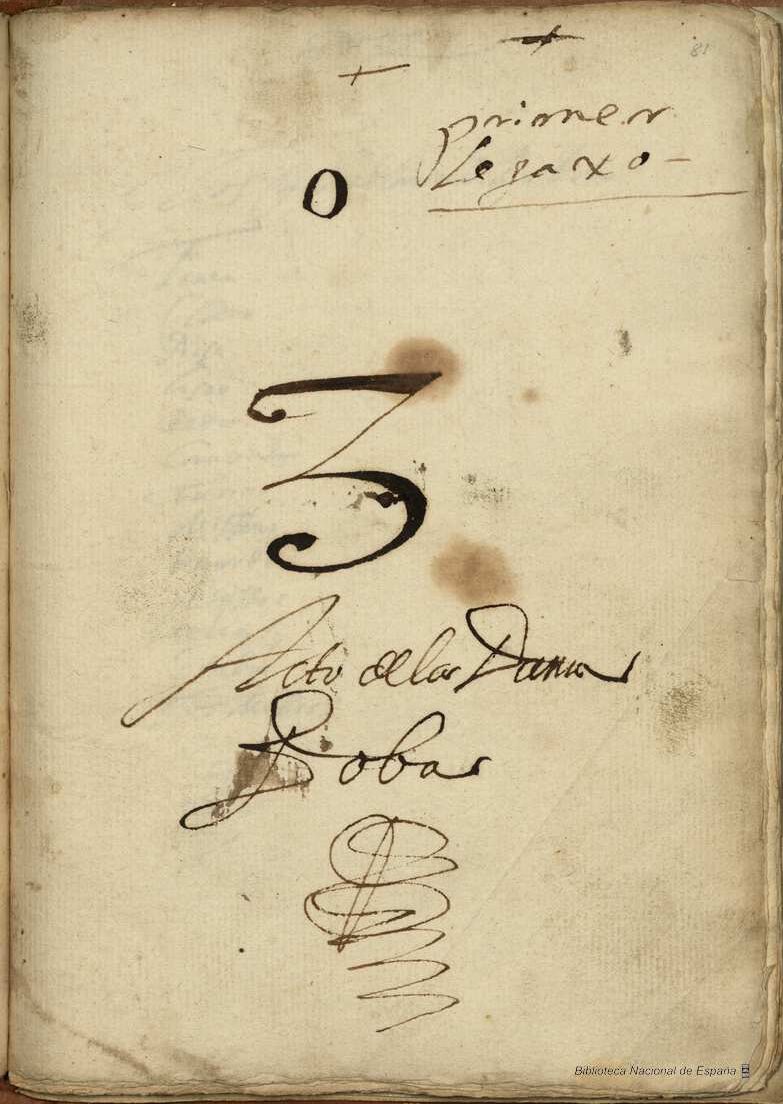 81
primer
legaxo -
0
3
Acto de la Dama
Boba
Biblioteca Nacional de España